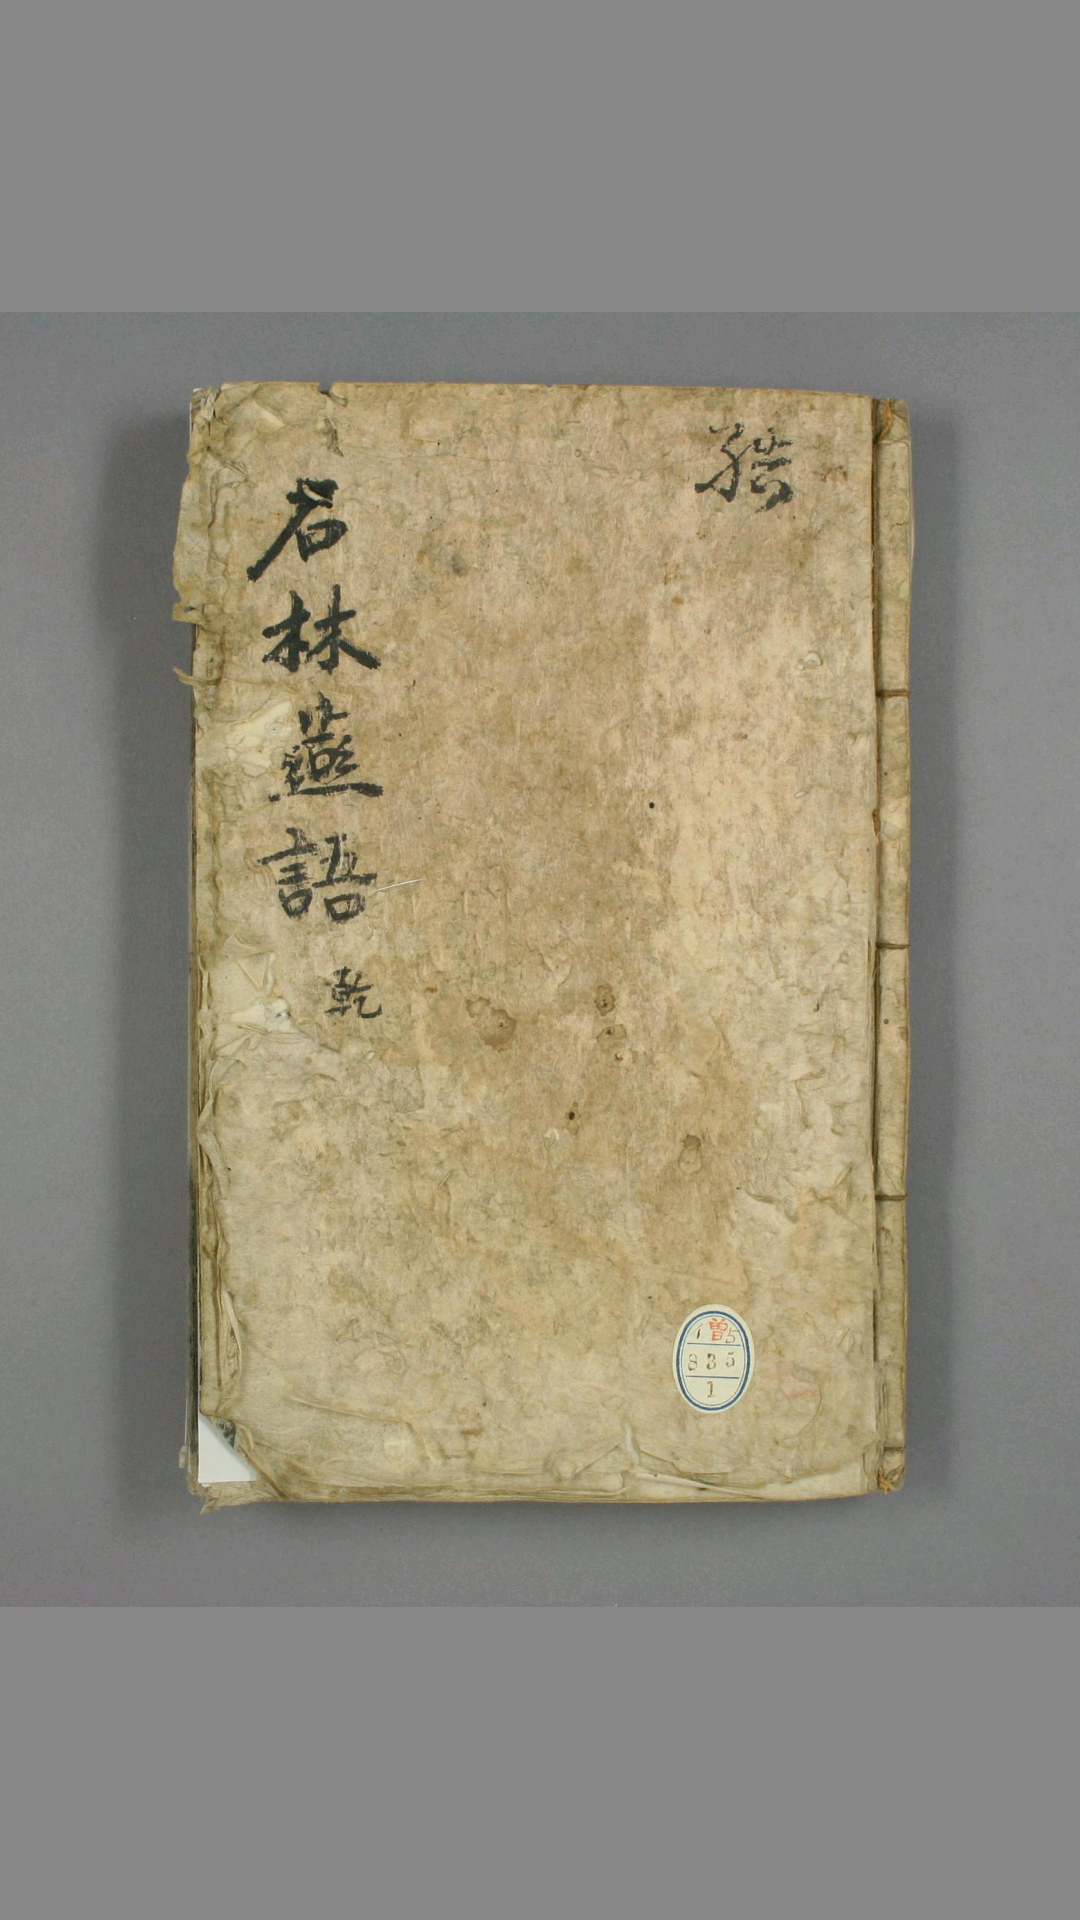 石林燕語 乾
1 曽 5
835
1